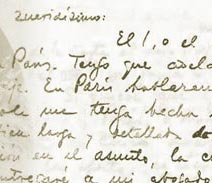 Queridísimo:
El 1, o el
París. Tengo que
En París hablaremos
me tenga hecho
bien larga y detallada
en el asunto, la
entregaré a mi abogado